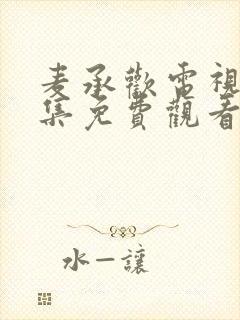 麦承歡電視
集免費觀看
水—讓